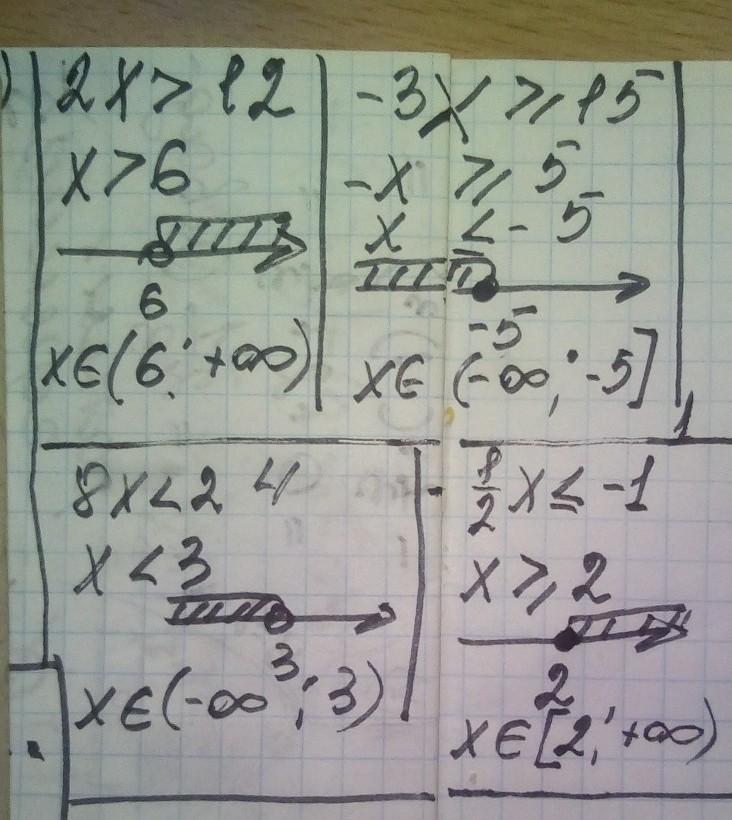 )
2x > 12
x > 6
6
x∈(6; +∞)
-3x ⩾ 15
-x ⩾ 5
x ≤ -5
-5
x∈ (-∞; -5]
1
8x < 24
x < 3
3
x∈(-∞; 3)
-1/2 x ≤ -1
x ⩾ 2
2
x∈[2; +∞)